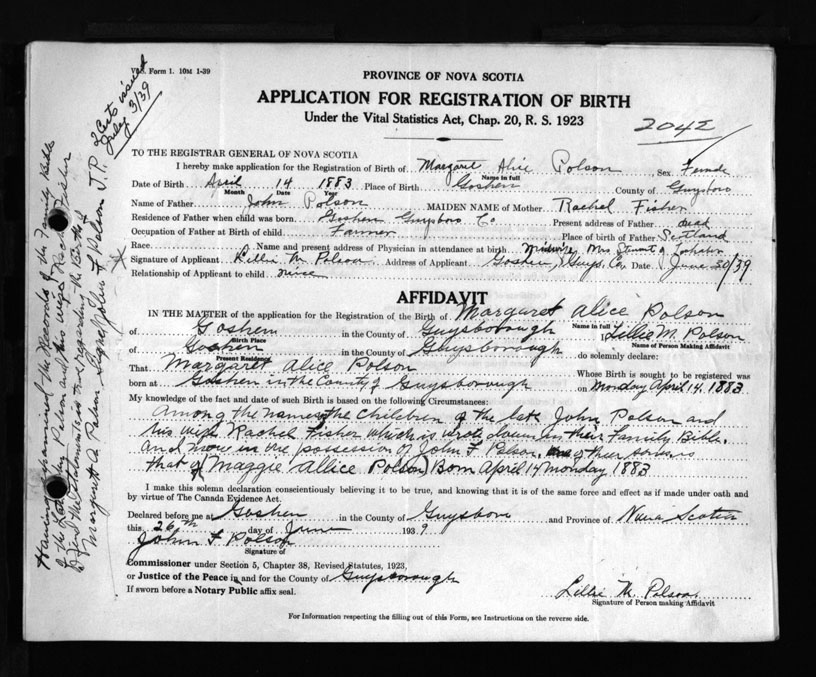 V.S. Form 1. 10M 1-39
2 Certs issued
July 3/39
PROVINCE OF NOVA SCOTIA
APPLICATION FOR REGISTRATION OF BIRTH
Under the Vital Statistics Act, Chap. 20, R. S. 1923
TO THE REGISTRAR GENERAL OF NOVA SCOTIA
I hereby make application for the Registration of Birth of Margaret Alice Polson Sex Female
Name in Full
Date of Birth April 14 1883 Place of Birth Goshen County of Guysboro
Month Day Year
Name of Father John Polson MAIDEN NAME of Mother Rachel Fisher
Residence of Father when child was born Goshen Guysboro Co Present address of Father dead
Occupation of Father at Birth of child Farmer Place of birth of Father Scotland
Race Name and present address of Physician in attendance at birth Midwife, Mrs Stuart
Signature of Applicant Lillie M Polson Address of Applicant Goshen, Guys. Co. Date June 30/39
Relationship of Applicant to child niece
AFFIDAVIT
IN THE MATTER of the application for the Registration of the Birth of Margaret Alice Polson
Name in full
of Goshen in the County of Guysborough Lillie M. Polson
Birth Place Name of Person Making Affidavit
of Goshen in the County of Guysborough do solemnly declare:
Present Residence
That Margaret Alice Polson Whose Birth is sought to be registered was
born at Goshen in the County of Guysborough on Monday April 14, 1883
My knowledge of the fact and date of such Birth is based on the following Circumstances:
Among the names of the children of the late John Polson and
his wife Rachel Fisher which is wrote down in their Family Bible.
and now in the possession of John F Polson. of their is
that of (Maggie Allice Polson) Born April 14 Monday 1883
I make this solemn declaration conscientiously believing it to be true, and knowing that it is of the same force and effect as if made under oath and
by virtue of The Canada Evidence Act.
Declared before me at Goshen in the County of Guysboro and Province of Nova Scotia
this 26th day of June 1939
John F Polson
Signature of
Commissioner under Section 5, Chapter 38, Revised Statutes, 1923,
or Justice of the Peace in and for the County of Guysborough
If sworn before a Notary Public affix seal.
Lillie M. Polson
Signature of Person making Affidavit
For Information respecting the filling out of this Form, see Instructions on the reverse side.
Having examined the Records of the Family Bible
of the Late John Polson and his wife Rachel Fisher
I find the Statements is true regarding the Birth of
Margaret A Polson Signed John F Polson J.P.